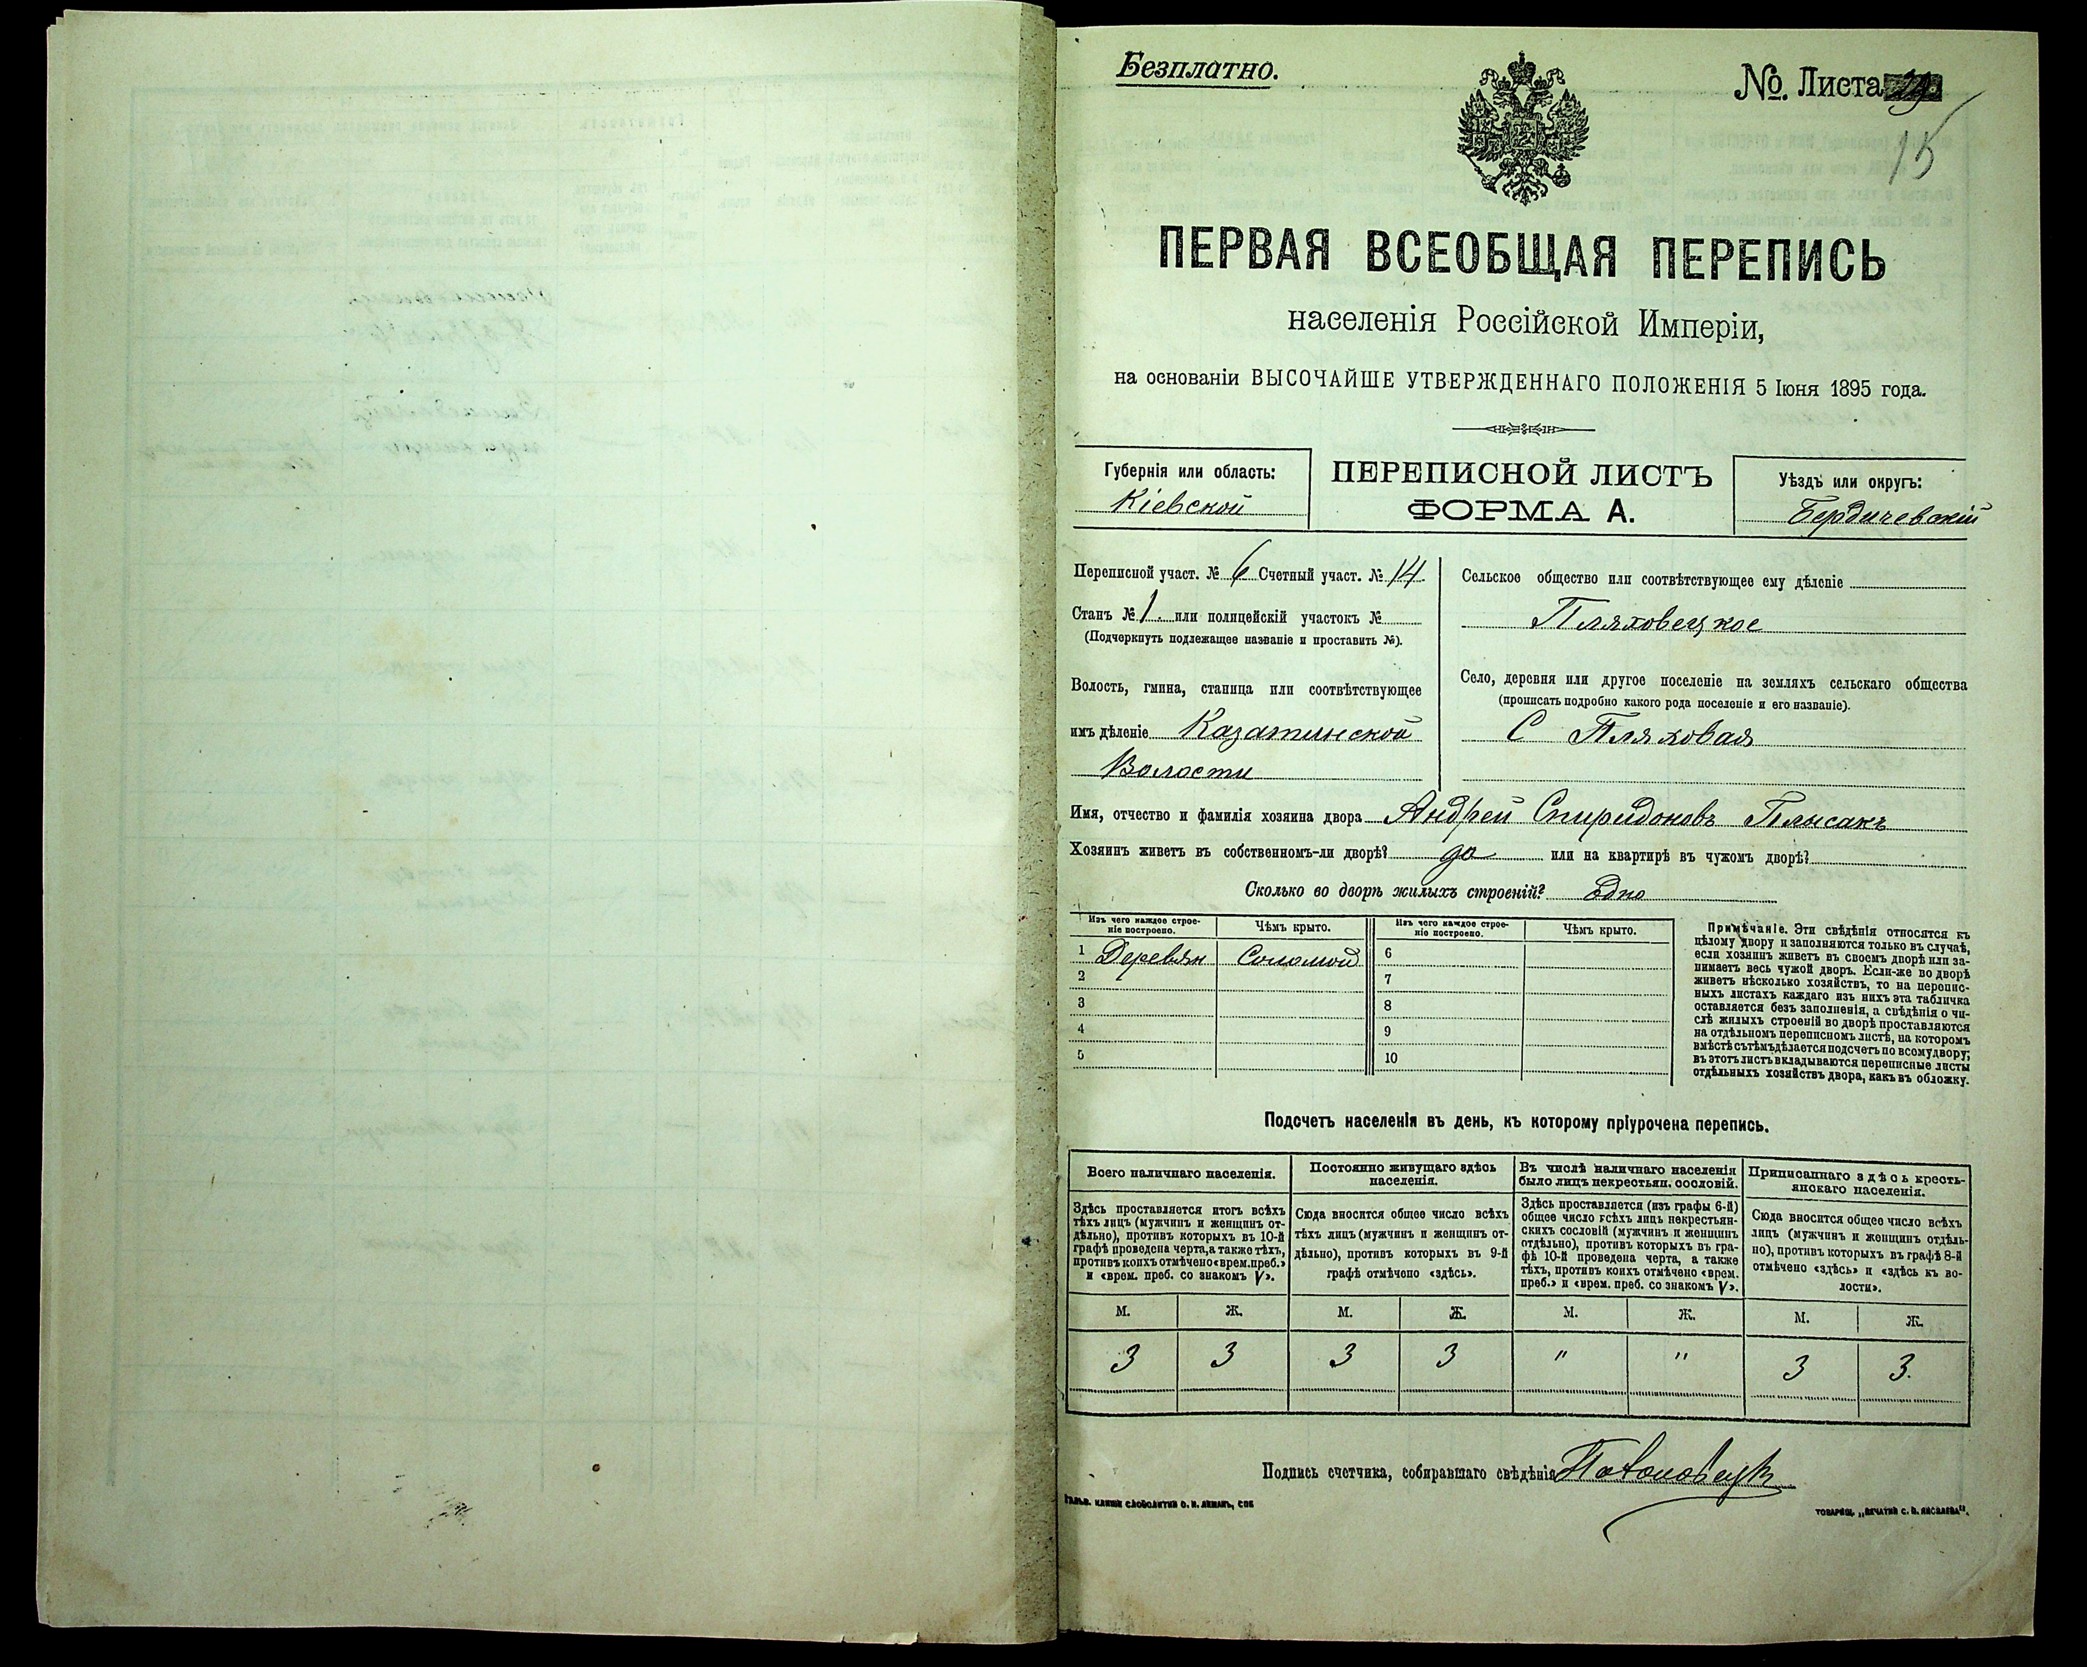 Безплатно.
№. Листа
15
ПЕРВАЯ ВСЕОБЩАЯ ПЕРЕПИСЬ
населенія Россійской Имперіи,
на основаніи ВЫСОЧАЙШЕ УТВЕРЖДЕННАГО ПОЛОЖЕНІЯ 5 Іюня 1895 года.
Губернія или область:
Кіевской
ПЕРЕПИСНОЙ ЛИСТЪ
ФОРМА А.
Уѣздъ или округъ:
Бердичевскій
Переписной участ. № 6 Счетный участ. № 14.
Станъ № 1. или полицейскій участокъ №
(Подчеркнуть подлежащее названіе и проставить №).
Волость, гмина, станица или соотвѣтствующее
имъ дѣленіе Казатинской
Волости
Сельское общество или соотвѣтствующее ему дѣленіе
Пляховецкое
Село, деревня или другое поселеніе на земляхъ сельскаго общества
(прописать подробно какого рода поселеніе и его названіе).
С Пляховая
Имя, отчество и фамилія хозяина двора Андрей Спиридоновъ
Хозяинъ живетъ въ собственномъ-ли дворѣ? да или на квартирѣ въ чужомъ дворѣ?
Сколько во дворѣ жилыхъ строеній? Одно
Изъ чего каждое строе-
ніе построено.
Чѣмъ крыто.
Изъ чего каждое строе-
ніе построено.
Чѣмъ крыто.
1 Деревян Соломой 6
2 7
3 8
4 9
5 10
Примѣчаніе. Эти свѣдѣнія относятся къ
цѣлому двору и заполняются только въ случаѣ,
если хозяинъ живетъ въ своемъ дворѣ или за-
нимаетъ весь чужой дворъ. Если-же во дворѣ
живетъ нѣсколько хозяйствъ, то на перепис-
ныхъ листахъ каждаго изъ нихъ эта табличка
оставляется безъ заполненія, а свѣдѣнія о чи-
слѣ жилыхъ строеній во дворѣ проставляются
на отдѣльномъ переписномъ листѣ, на которомъ
вмѣстѣ съ тѣмъ дѣлается подсчетъ по всему двору;
въ этотъ листъ вкладываются переписные листы
отдѣльныхъ хозяйствъ двора, какъ въ обложку.
Подсчетъ населенія въ день, къ которому пріурочена перепись.
Всего наличнаго населенія.
Здѣсь проставляется итогъ всѣхъ
тѣхъ лицъ (мужчинъ и женщинъ от-
дѣльно), противъ которыхъ въ 10-й
графѣ проведена черта, а также тѣхъ,
противъ коихъ отмѣчено «врем. преб.»
и «врем. преб. со знакомъ V».
Постоянно живущаго здѣсь
населенія.
Сюда вносится общее число всѣхъ
тѣхъ лицъ (мужчинъ и женщинъ от-
дѣльно), противъ которыхъ въ 9-й
графѣ отмѣчено «здѣсь».
Въ числѣ наличнаго населенія
было лицъ некрестьян. сословій.
Здѣсь проставляется (изъ графы 6-й)
общее число всѣхъ лицъ некрестьян-
скихъ сословій (мужчинъ и женщинъ
отдѣльно), противъ которыхъ въ гра-
фѣ 10-й проведена черта, а также
тѣхъ, противъ коихъ отмѣчено «врем.
преб.» и «врем. преб. со знакомъ V».
Приписаннаго здѣсь кресть-
янскаго населенія.
Сюда вносится общее число всѣхъ
лицъ (мужчинъ и женщинъ отдѣль-
но), противъ которыхъ въ графѣ 8-й
отмѣчено «здѣсь» и «здѣсь къ во-
лости».
М. Ж. М. Ж. М. Ж. М. Ж.
3 3 3 3 " " 3 3.
Подпись счетчика, собиравшаго свѣдѣнія